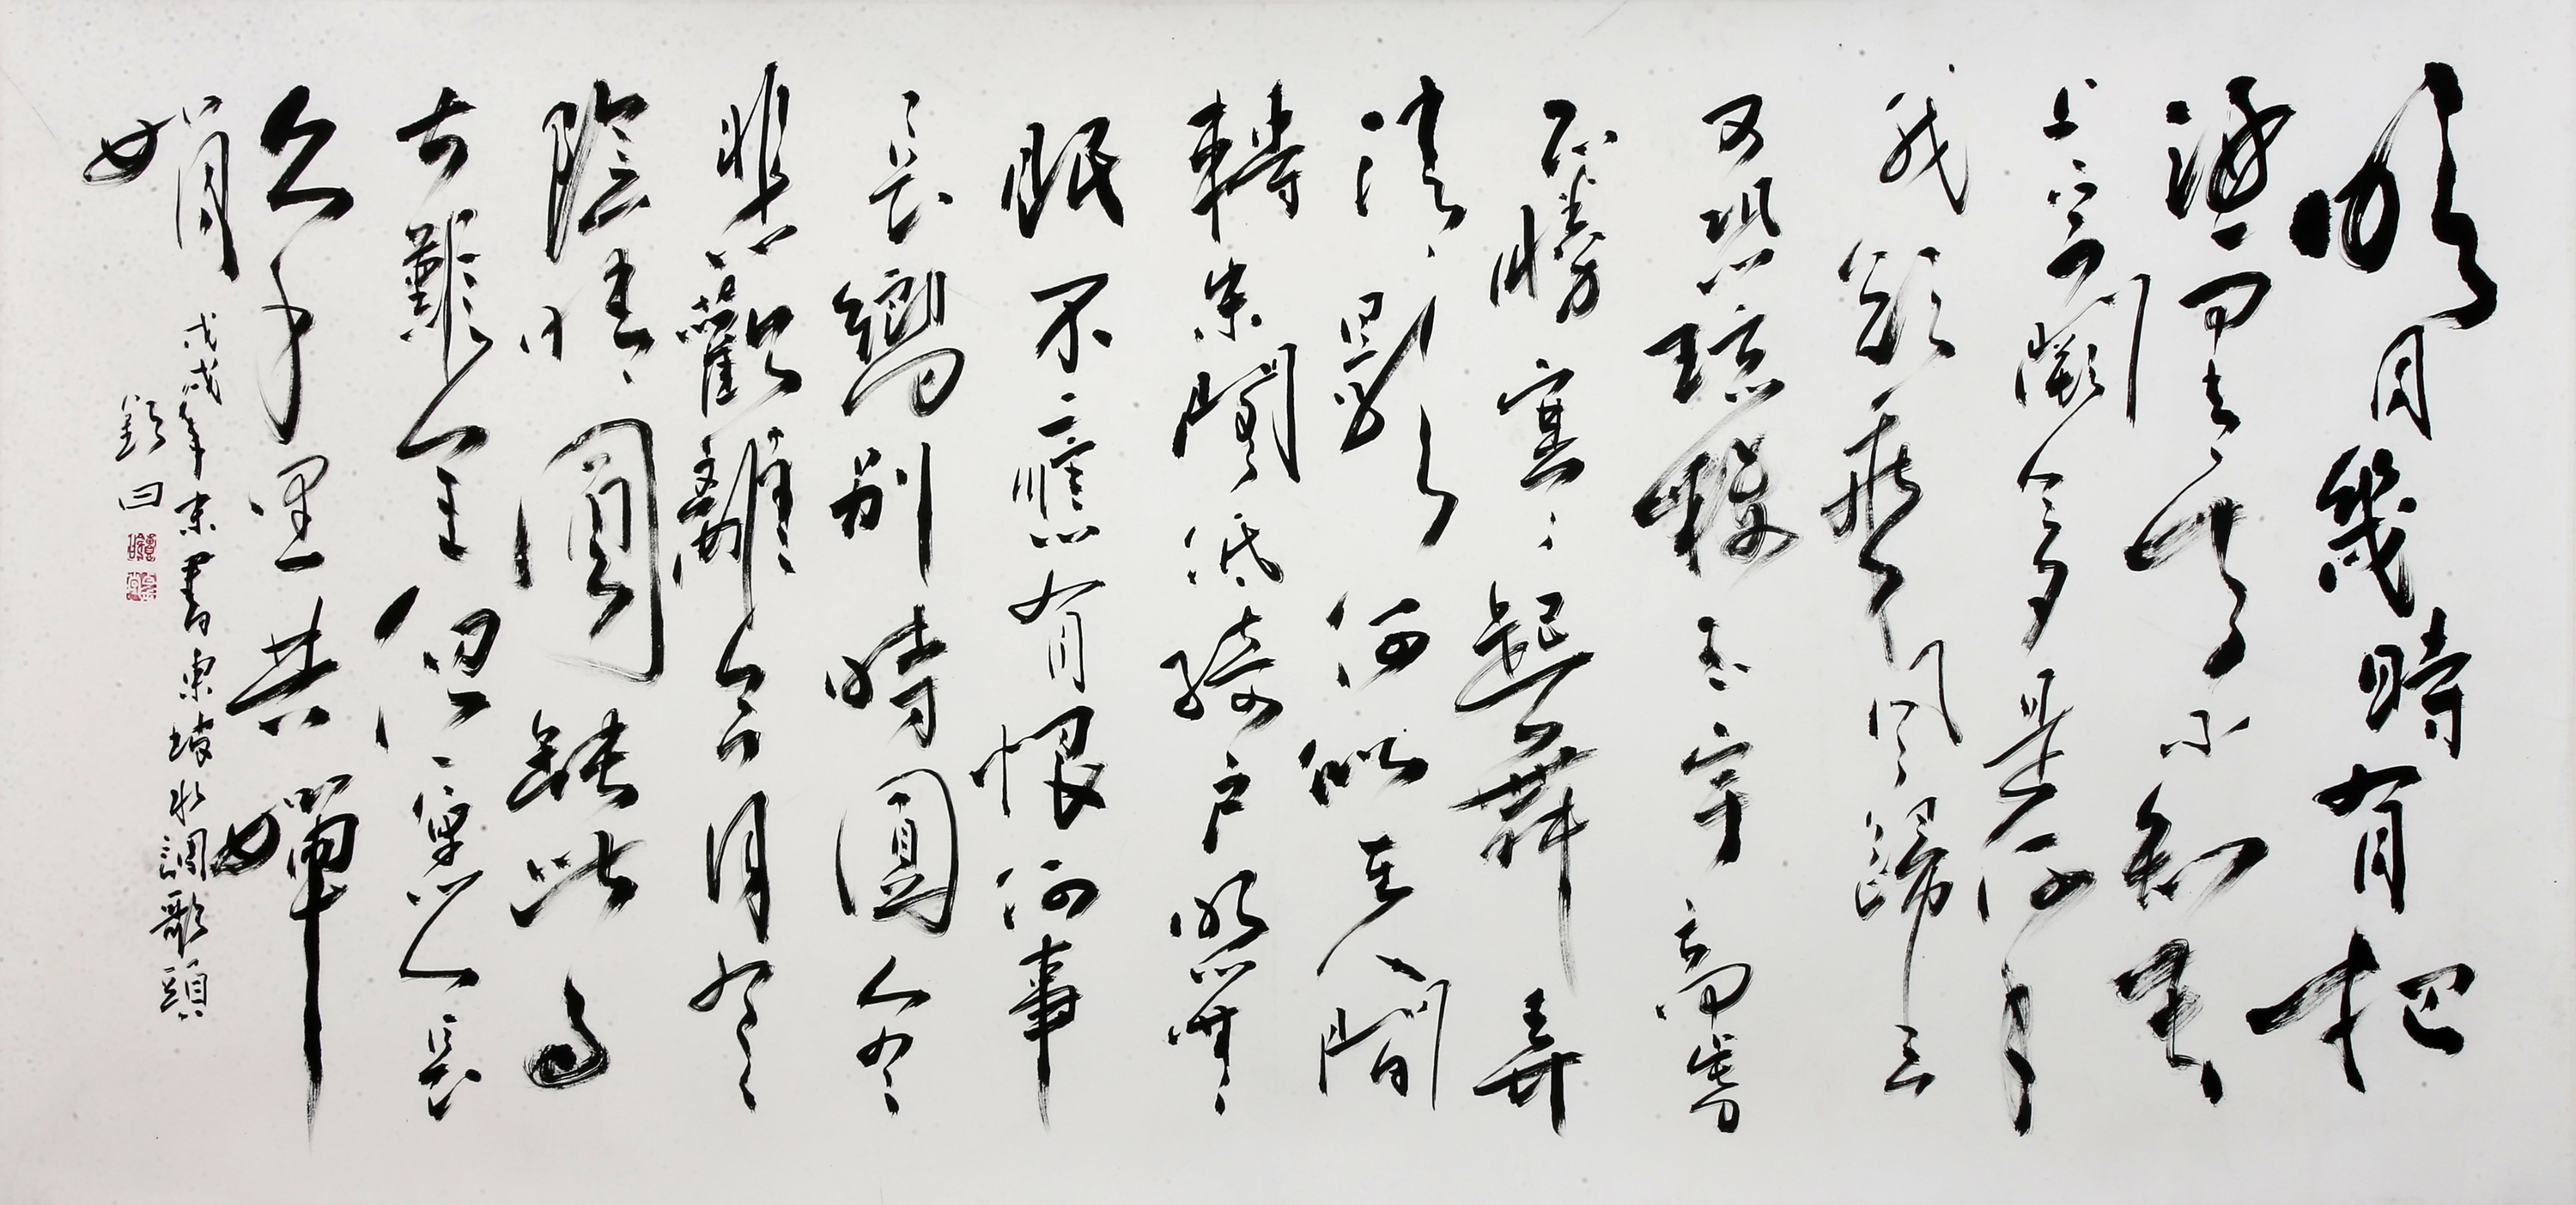 明月幾時有把
酒問青天不知天
上宮闕今夕是何年
我欲乘風歸去
又恐瓊樓玉宇高處
不勝寒起舞弄
清影何似在人間
轉朱閣低綺戶照無
眠不應有恨何事
長嚮別時圓人有
悲歡離合月有
陰晴圓缺此事
古難全但願人長
久千里共嬋
娟
戊戌年末書東坡水調歌頭